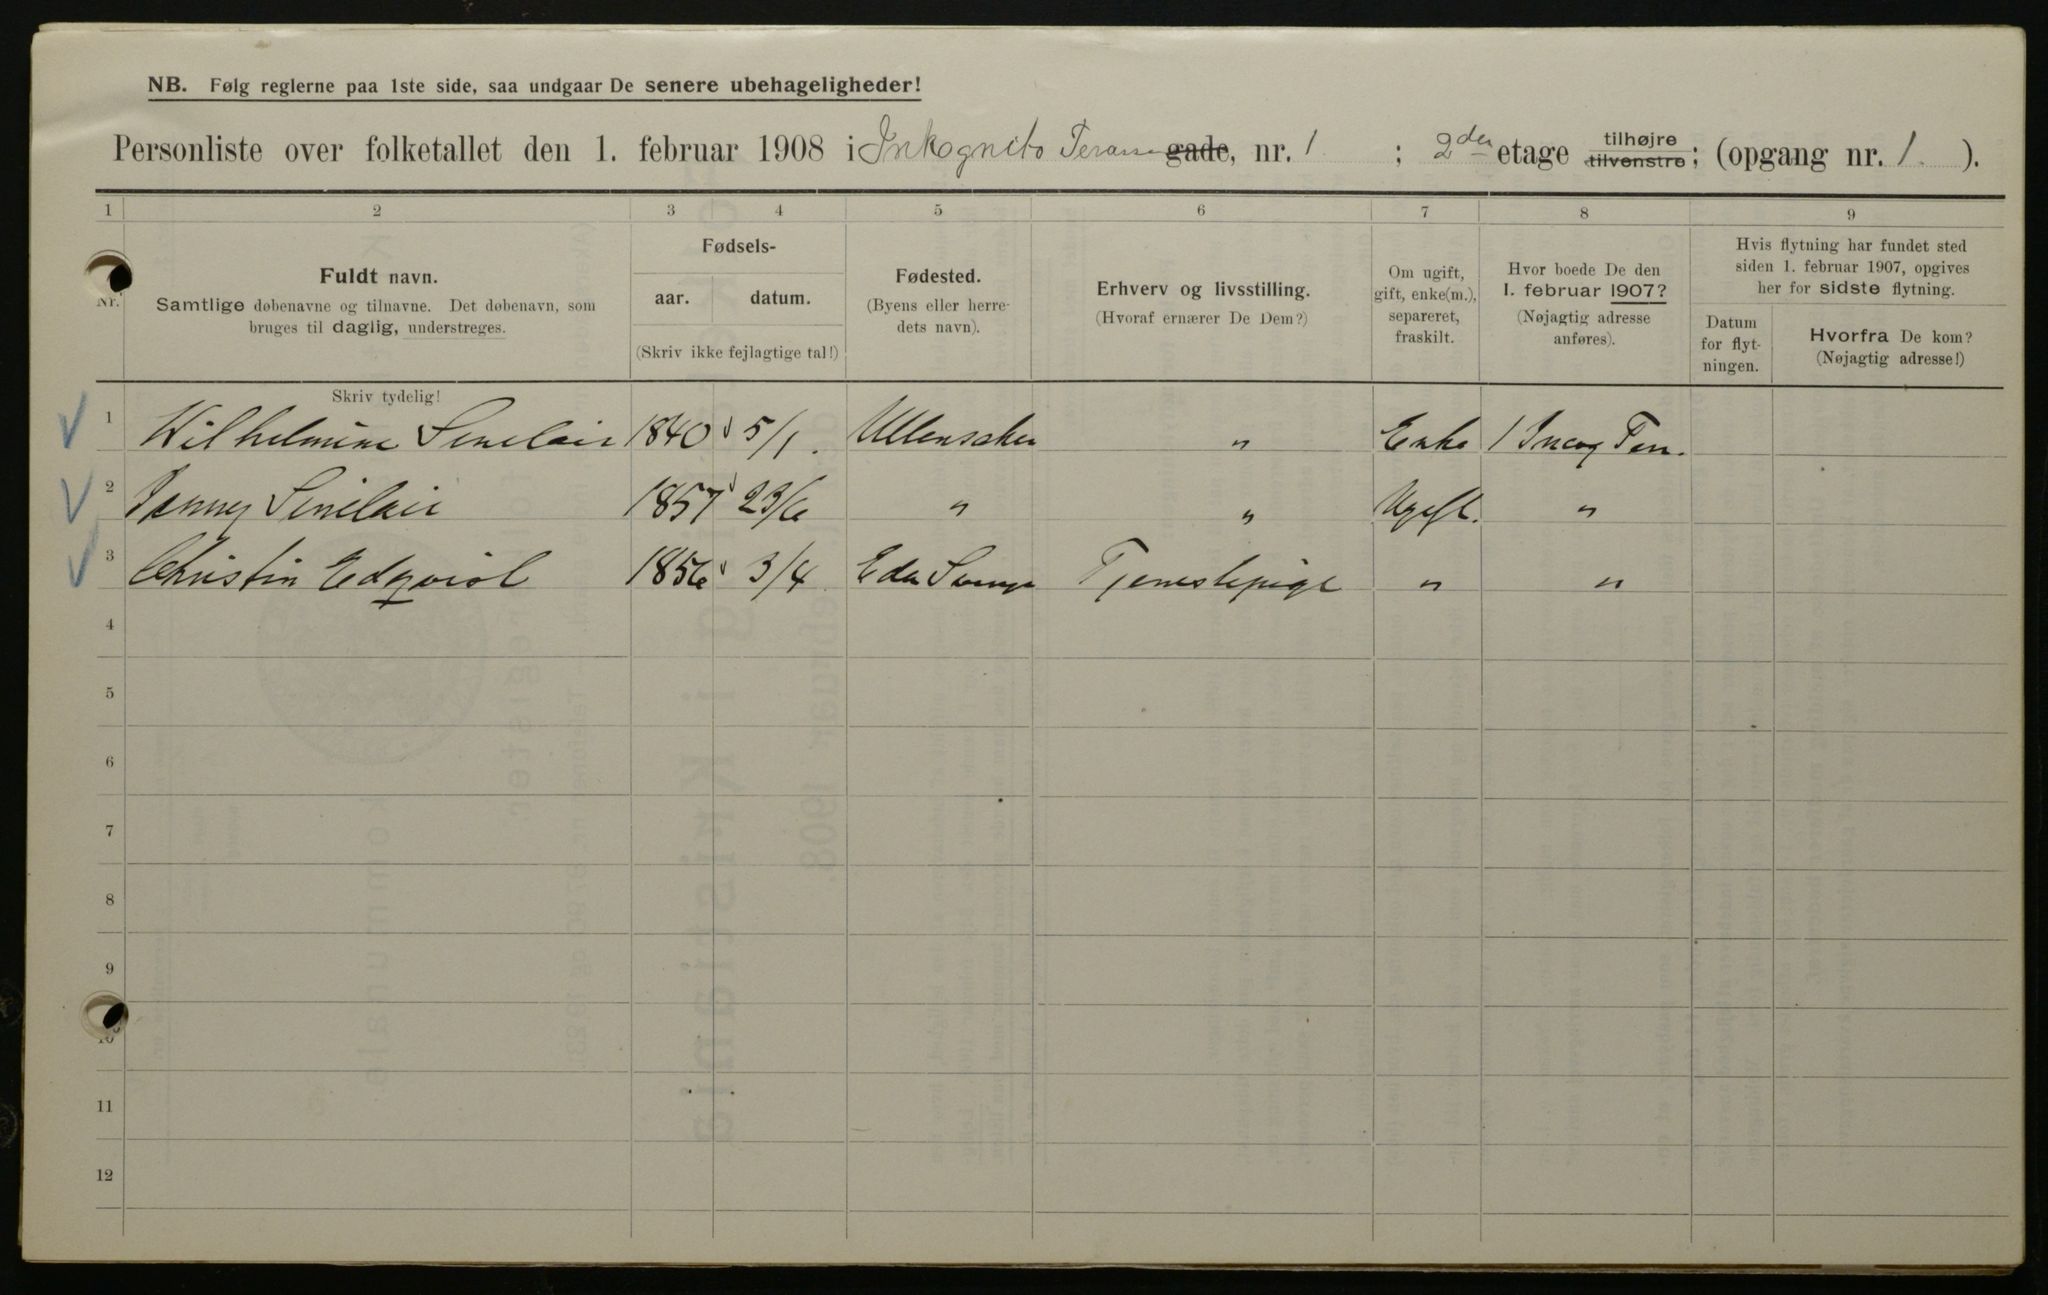 NB. Følg reglerne paa 1ste side, saa undgaar De senere ubehageligheder!
Personliste over folketallet den 1. februar 1908 i Inkognito Terasse gade, nr. 1 ; 2den etage tilhøjre tilvenstre; (opgang nr. 1 ).
1 2 3 4 5 6 7 8 9
Nr.
Fuldt navn.
Samtlige døbenavne og tilnavne. Det døbenavn, som
bruges til daglig, understreges.
Skriv tydelig!
Fødsels-
aar. datum.
(Skriv ikke fejlagtige tal!)
Fødested.
(Byens eller herre-
dets navn).
Erhverv og livsstilling.
(Hvoraf ernærer De Dem?)
Om ugift,
gift, enke(m.),
separeret,
fraskilt.
Hvor boede De den
1. februar 1907?
(Nøjagtig adresse
anføres).
Hvis flytning har fundet sted
siden 1. februar 1907, opgives
her for sidste flytning.
Datum
for flyt-
ningen.
Hvorfra De kom?
(Nøjagtig adresse!)
1 Wilhelmine Sinclair 1840 5/1. Ullensaker " Enke 1 Incog Terr.
2 Jenny Sinclair 1857 23/6 " " Ugift. "
3 Christin Edqvist 1856 3/4 Eda Tjenestepige " "
4
5
6
7
8
9
10
11
12